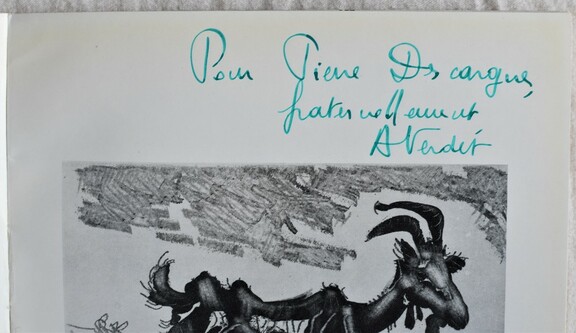 Pour Pierre Descargues,
fraternellement
A Verdet